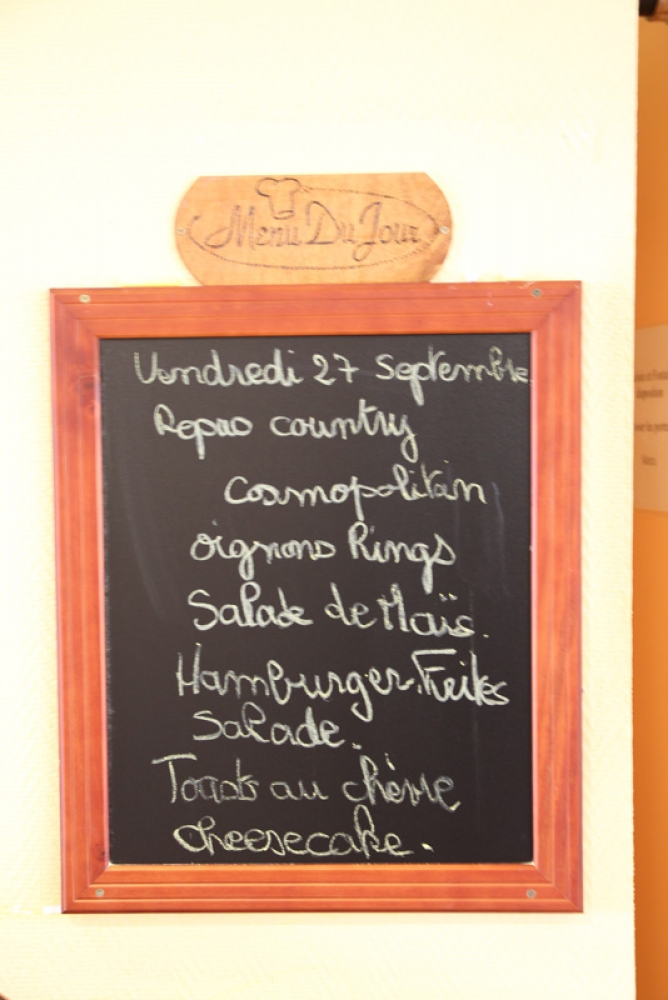 Menu Du Jour
Vendredi 27 Septembre
Repas country
cosmopolitan
oignons Rings
Salade de Maïs.
Hamburger. Frites
Salade.
Toasts au chèvre
cheesecake.